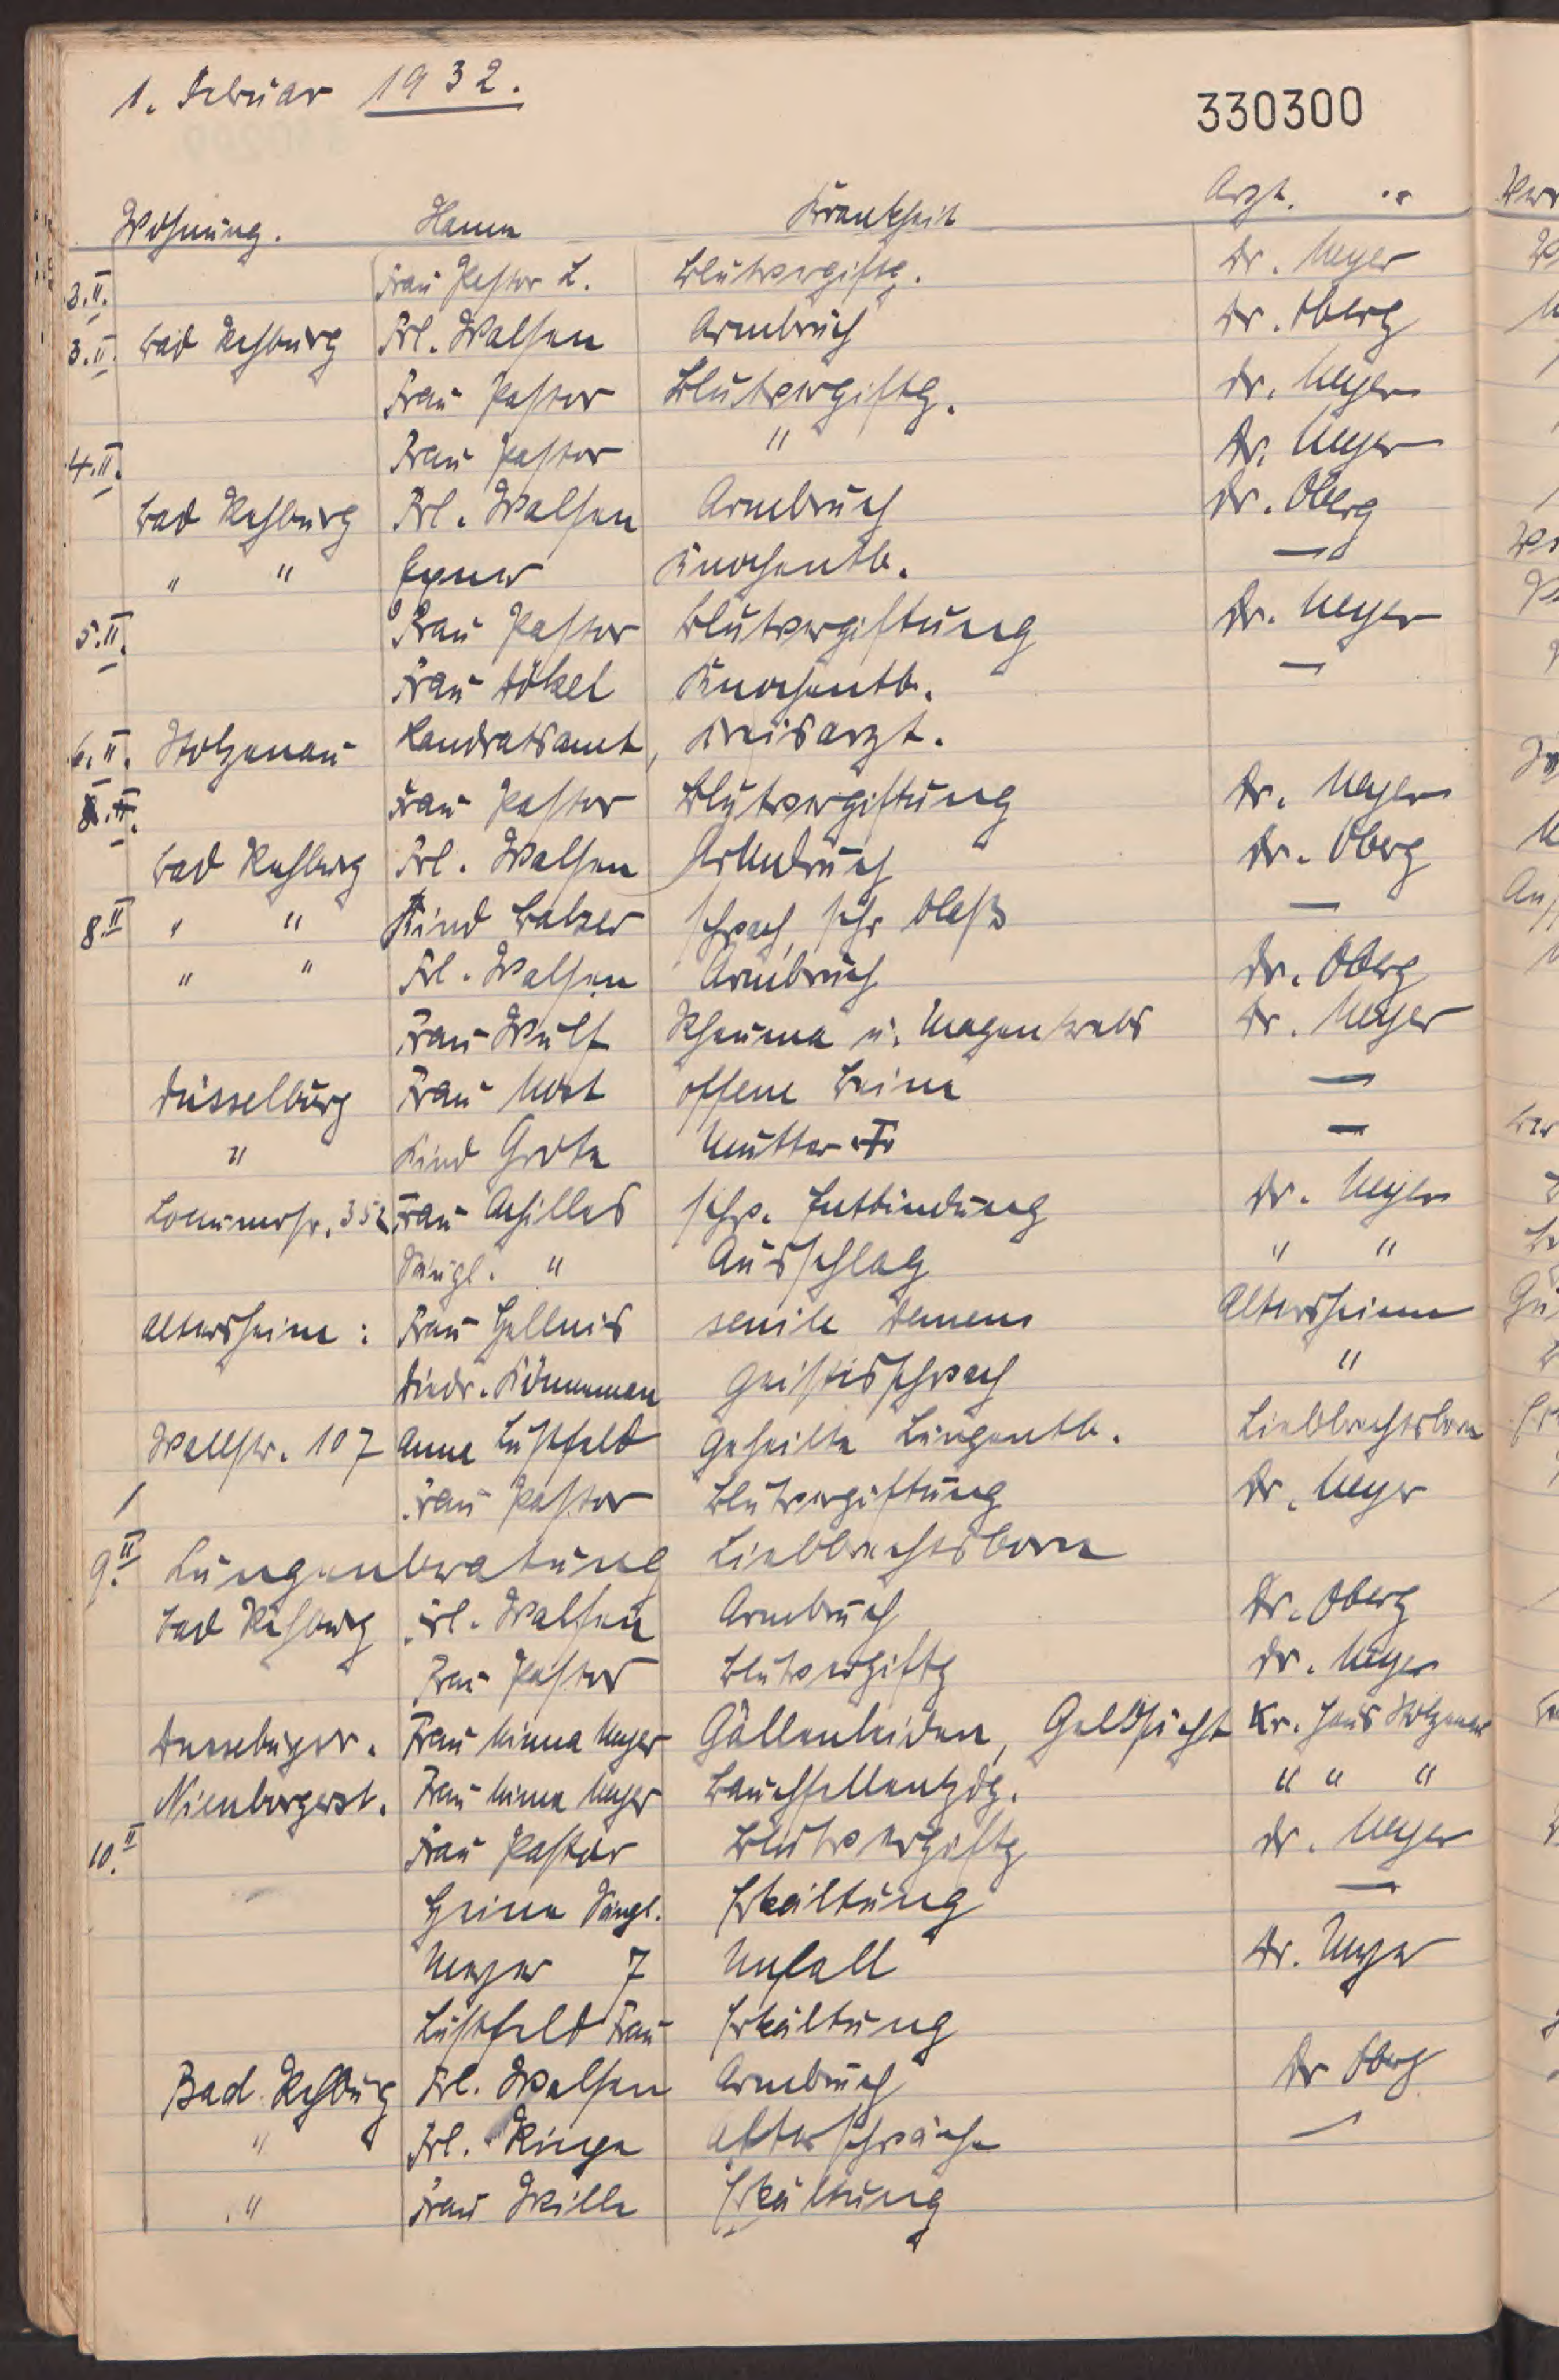 1. Februar 1932.
330300
Wohnung. Namen Krankheit Arzt.
2.II. Frau Pastor L. Blutvergiftg. Dr. Meyer
3.II. Bad Rehburg Frl. Walsen Armbruch Dr. Oberg
Frau Pastor Blutvergiftg. Dr. Meyer
4.II. Frau Pastor " Dr. Meyer
Bad Rehburg Frl. Walsen Armbruch Dr. Oberg
" " Knochentb. —
5.II. Frau Pastor Blutvergiftung Dr. Meyer
Frau Dökel Knochentb. —
6.II. Stolzenau Landratsamt, Kreisarzt.
8.II. Frau Pastor Blutvergiftung Dr. Meyer
Bad Rehburg Frl. Walsen Armbruch Dr. Oberg
8.II " " Kind Balzer schwach, sehr blaß —
" " Frl. Walsen Armbruch Dr. Oberg
Frau Wulf Rheuma u. Magenkrebs Dr. Meyer
Düsselburg Frau Most offene Beine —
" Kind Grote Mutter —
Loccumerstr. 352 Frau Achilles schw. Entbindung Dr. Meyer
Säugl. " Ausschlag " "
Altersheim: Frau senile Demens Altersheim
Diedr. Könneman geistisschwach "
Wallstr. 107 Anna Lustfeld geheilte Lungentb. Liebbrechtsborn
Frau Pastor Blutvergiftung Dr. Meyer
9.II Lungenberatung Liebbrechtsborn
Bad Rehburg Frl. Walsen Armbruch Dr. Oberg
Frau Pastor Blutvergiftg Dr. Meyer
Frau Minna Meyer Gällenleiden, Gelbsucht Kr. Haus Stolzenau
Nienburgerst. Frau Minna Meyer Bauchfellentzdg. " " "
10.II Frau Pastor Blutvergiftg Dr. Meyer
Heine Säugl. Erkältung —
Meyer 7 Unfall Dr. Meyer
Lustfeld Frau Erkältung
Bad Rehburg Frl. Walsen Armbruch Dr Oberg
" Frl. Ringe Altersschwäche —
" Frau Wille Erkältung